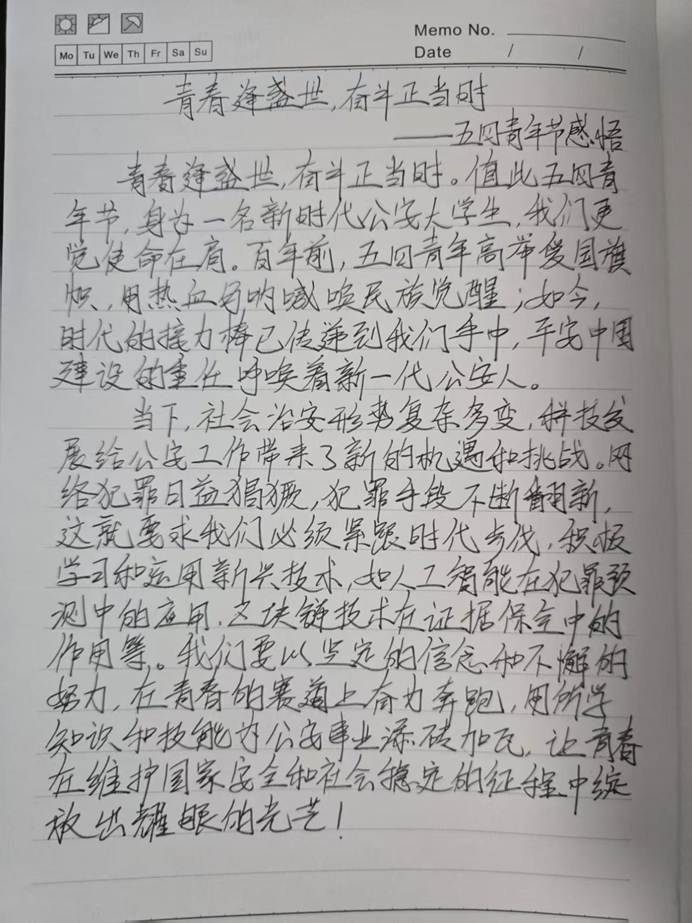 Memo No.
Mo Tu We Th Fr Sa Su
Date / /
青春逢盛世,奋斗正当时
——五四青年节感悟
青春逢盛世,奋斗正当时。值此五四青
年节,身为一名新时代公安大学生,我们更
觉使命在肩。百年前,五四青年高举爱国旗
帜,用热血与呐喊唤民族觉醒;如今,
时代的接力棒已传递到我们手中,平安中国
建设的重任呼唤着新一代公安人。
当下,社会治安形势复杂多变,科技发
展给公安工作带来了新的机遇和挑战。网
络犯罪日益猖獗,犯罪手段不断翻新,
这就要求我们必须紧跟时代步伐,积极
学习和运用新兴技术,如人工智能在犯罪预
测中的应用,区块链技术在证据保全中的
作用等。我们要以坚定的信念和不懈的
努力,在青春的赛道上奋力奔跑,用所学
知识和技能为公安事业添砖加瓦,让青春
在维护国家安全和社会稳定的征程中绽
放出耀眼的光芒!